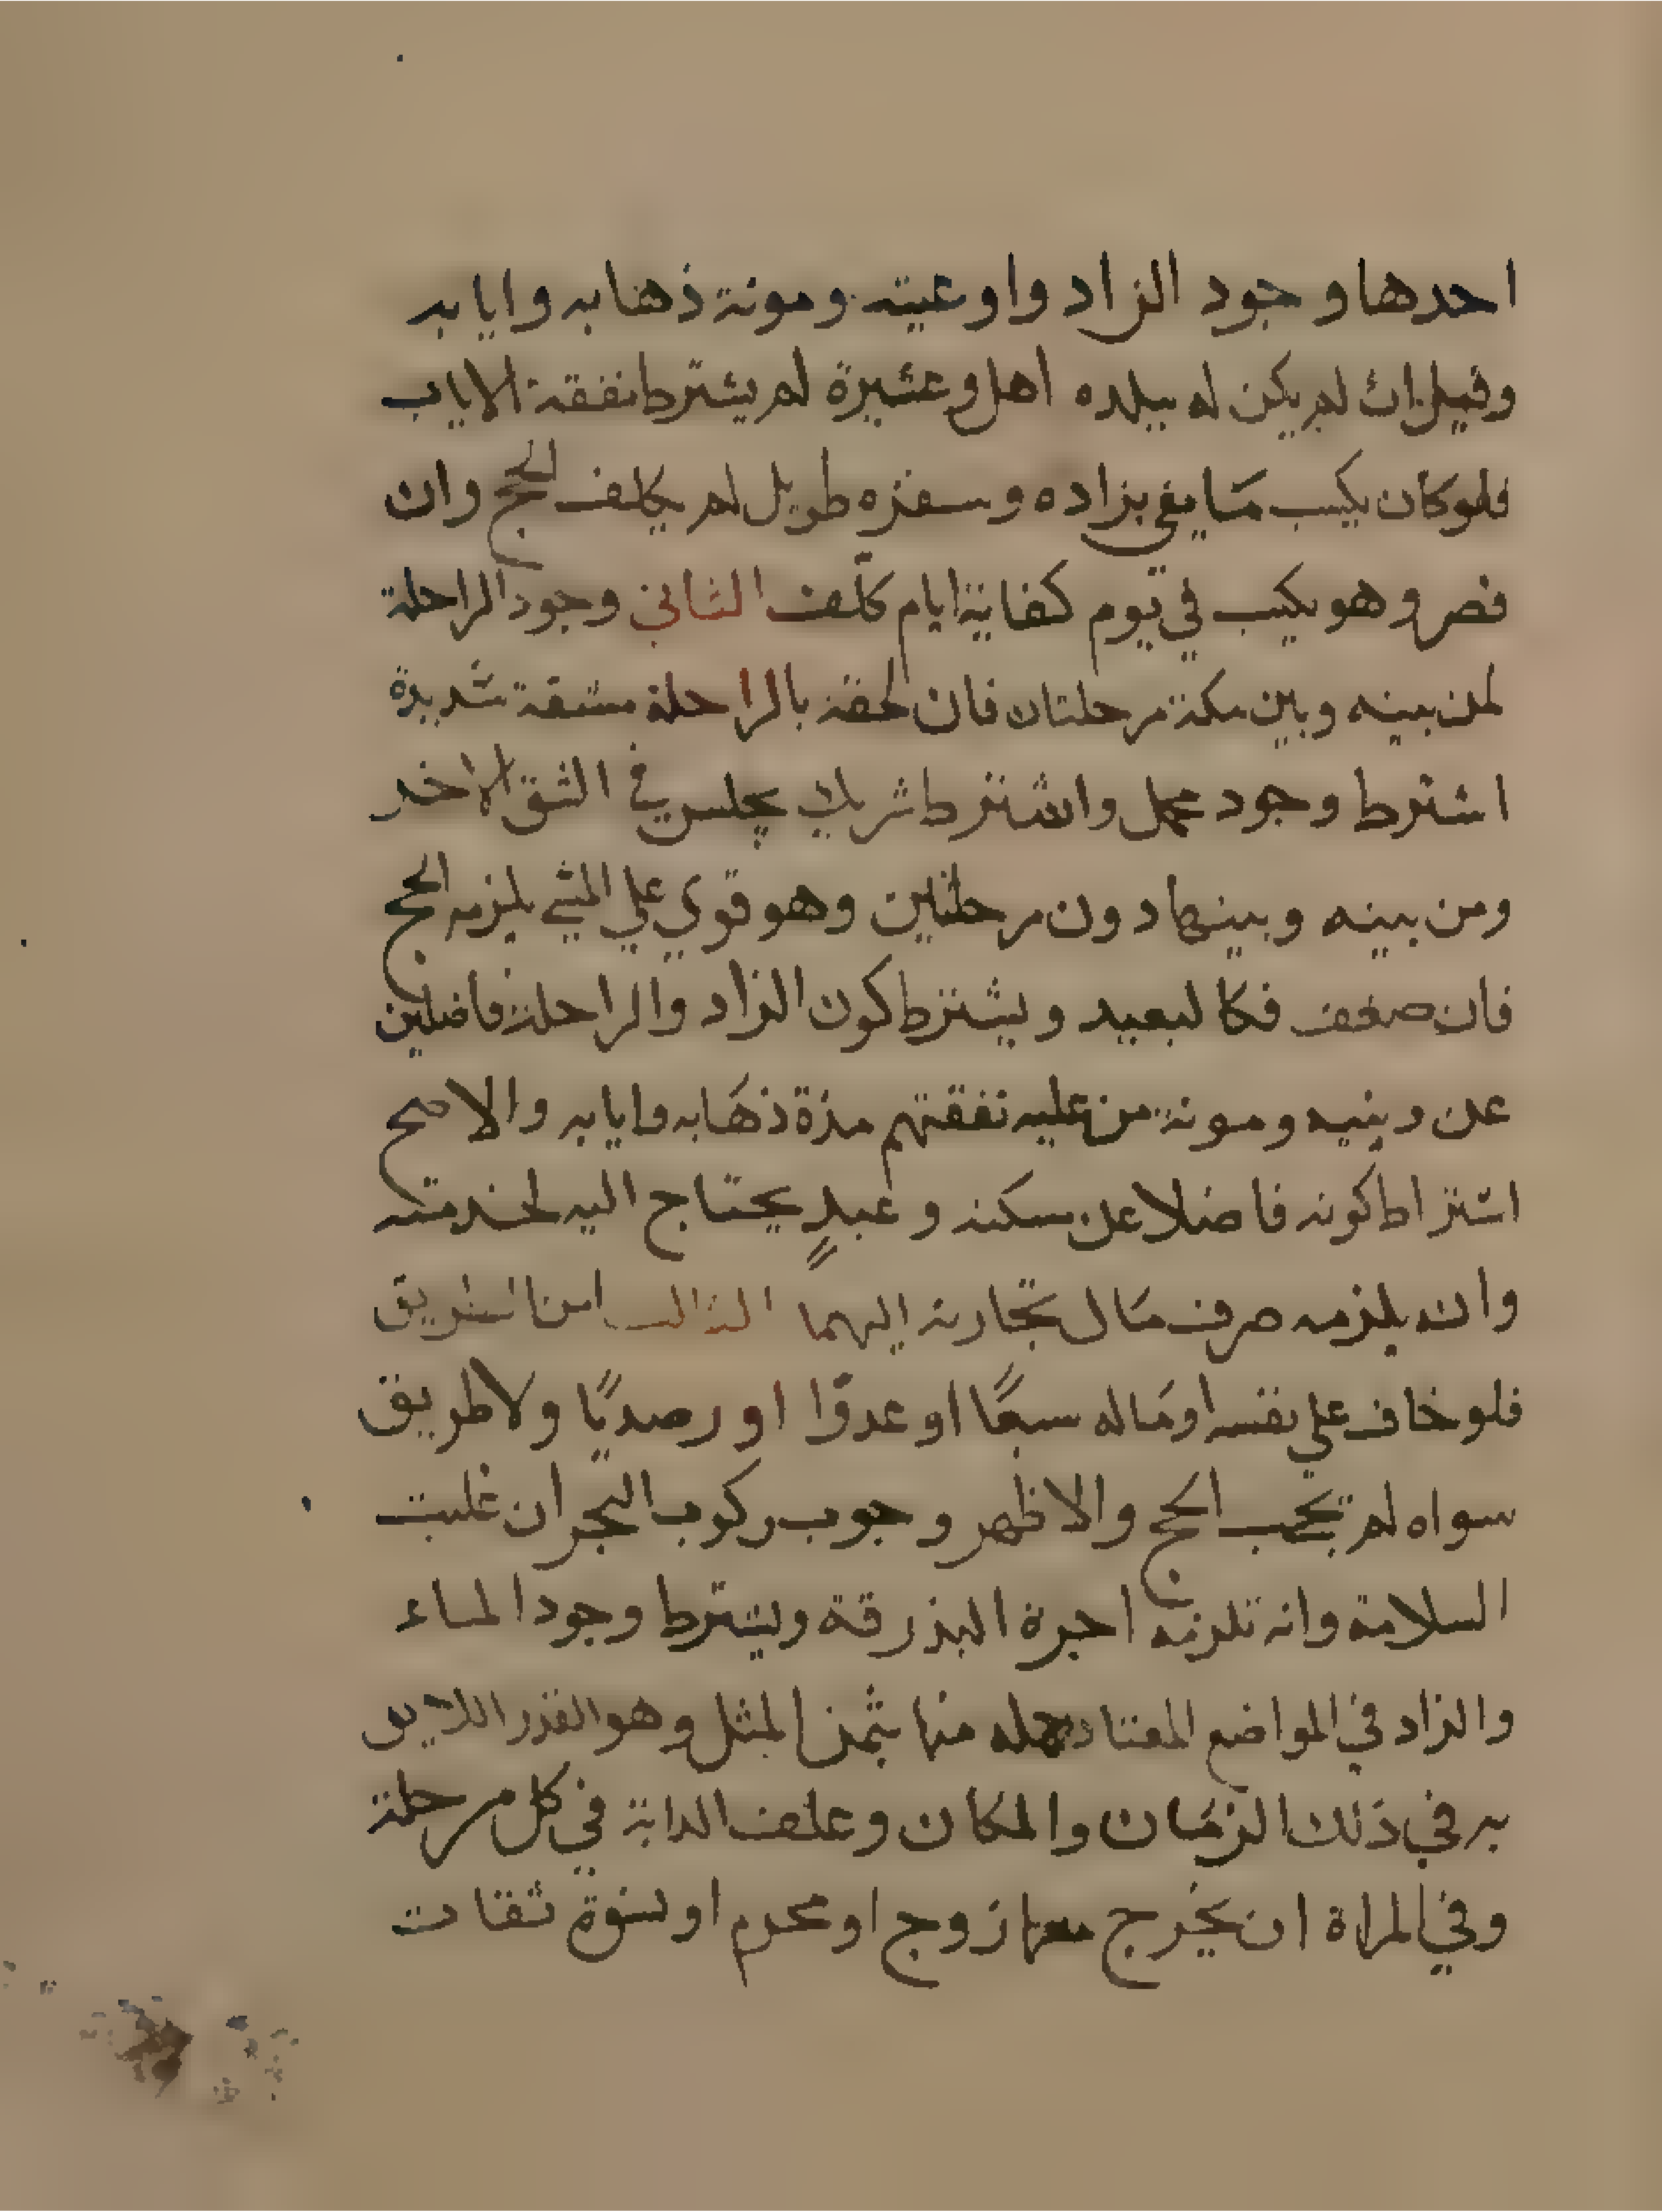 احدها وجود الزاد واوعيته ومونة ذهابه وايابه
وقيل ان لم يكن له ببلده اهل وعشيرة لم يشترط نفقة الاياب
فلو كان يكسب مَا يفي بزاده وسفره طويل لم يكلف الحج وان
قصر وهو يكسب في يوم كفاية ايام كلّف الثاني وجود الراحلة
لمن بينه وبين مكة مرحلتان فان لحقه بالراحلة مشقة شديدة
اشترط وجود محمل واشترط شريك يجلس في الشق الاخر
ومن بينه وبينها دون مرحلتين وهو قوي علي المشي يلزمه الحج
فان ضعف فكالبعيد ويشترط كون الزاد والراحلة فاضلين
عن دينيه ومونة من عليه نفقتهم مدة ذهَابه وايابه والاصح
اشتراط كونه فاضلا عن مسكنه وعبدٍ يحتاج اليه لخدمته
وانه يلزمه صرف مَال تجارته اليهما الثالث امن الطريق
فلو خاف علي نفسه او مَاله سبعًا او عدوّا او رصديًا ولا طريق
سواه لم يجب الحج والاظهر وجوب ركوب البحر ان غلبت
السلامة وانه تلزمه اجرة البذرقة ويشترط وجود الماء
والزاد في المواضع المعتاد حمله منها بثمن المثل وهو القدر اللايق
به في ذلك الزمَان والمكان وعلف الدابة في كل مرحلة
وفي المراة ان يخرج معها زوج او محرم او نسوة ثقات